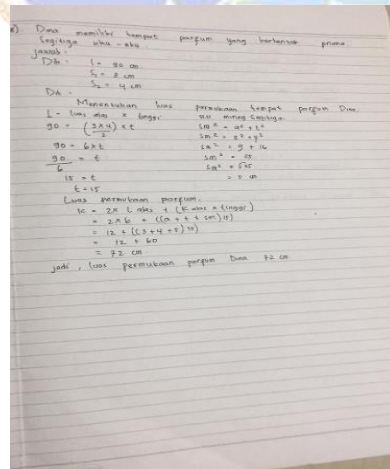 Dina memiliki tempat parfum yang berbentuk prisma
Segitiga siku-siku
Jawab :
Dik : L = 90 cm
S₁ = 3 cm
S₂ = 4 cm
Dit :
Menentukan luas permukaan tempat parfum Dina.
L = Luas alas × tinggi
90 = (3×4 / 2) × t
90 = 6 × t
90 / 6 = t
15 = t
t = 15
sisi miring segitiga
sm² = a² + t²
sm² = 3² + 4²
sm² = 9 + 16
sm² = 25
sm² = √25
= 5 cm
Luas permukaan parfum.
= 2 × L alas + (K alas × tinggi)
= 2 × 6 + ((a + t + sm) 15)
= 12 + ((3 + 4 + 5) 15)
= 12 + 60
= 72 cm
jadi, luas permukaan parfum Dina 72 cm